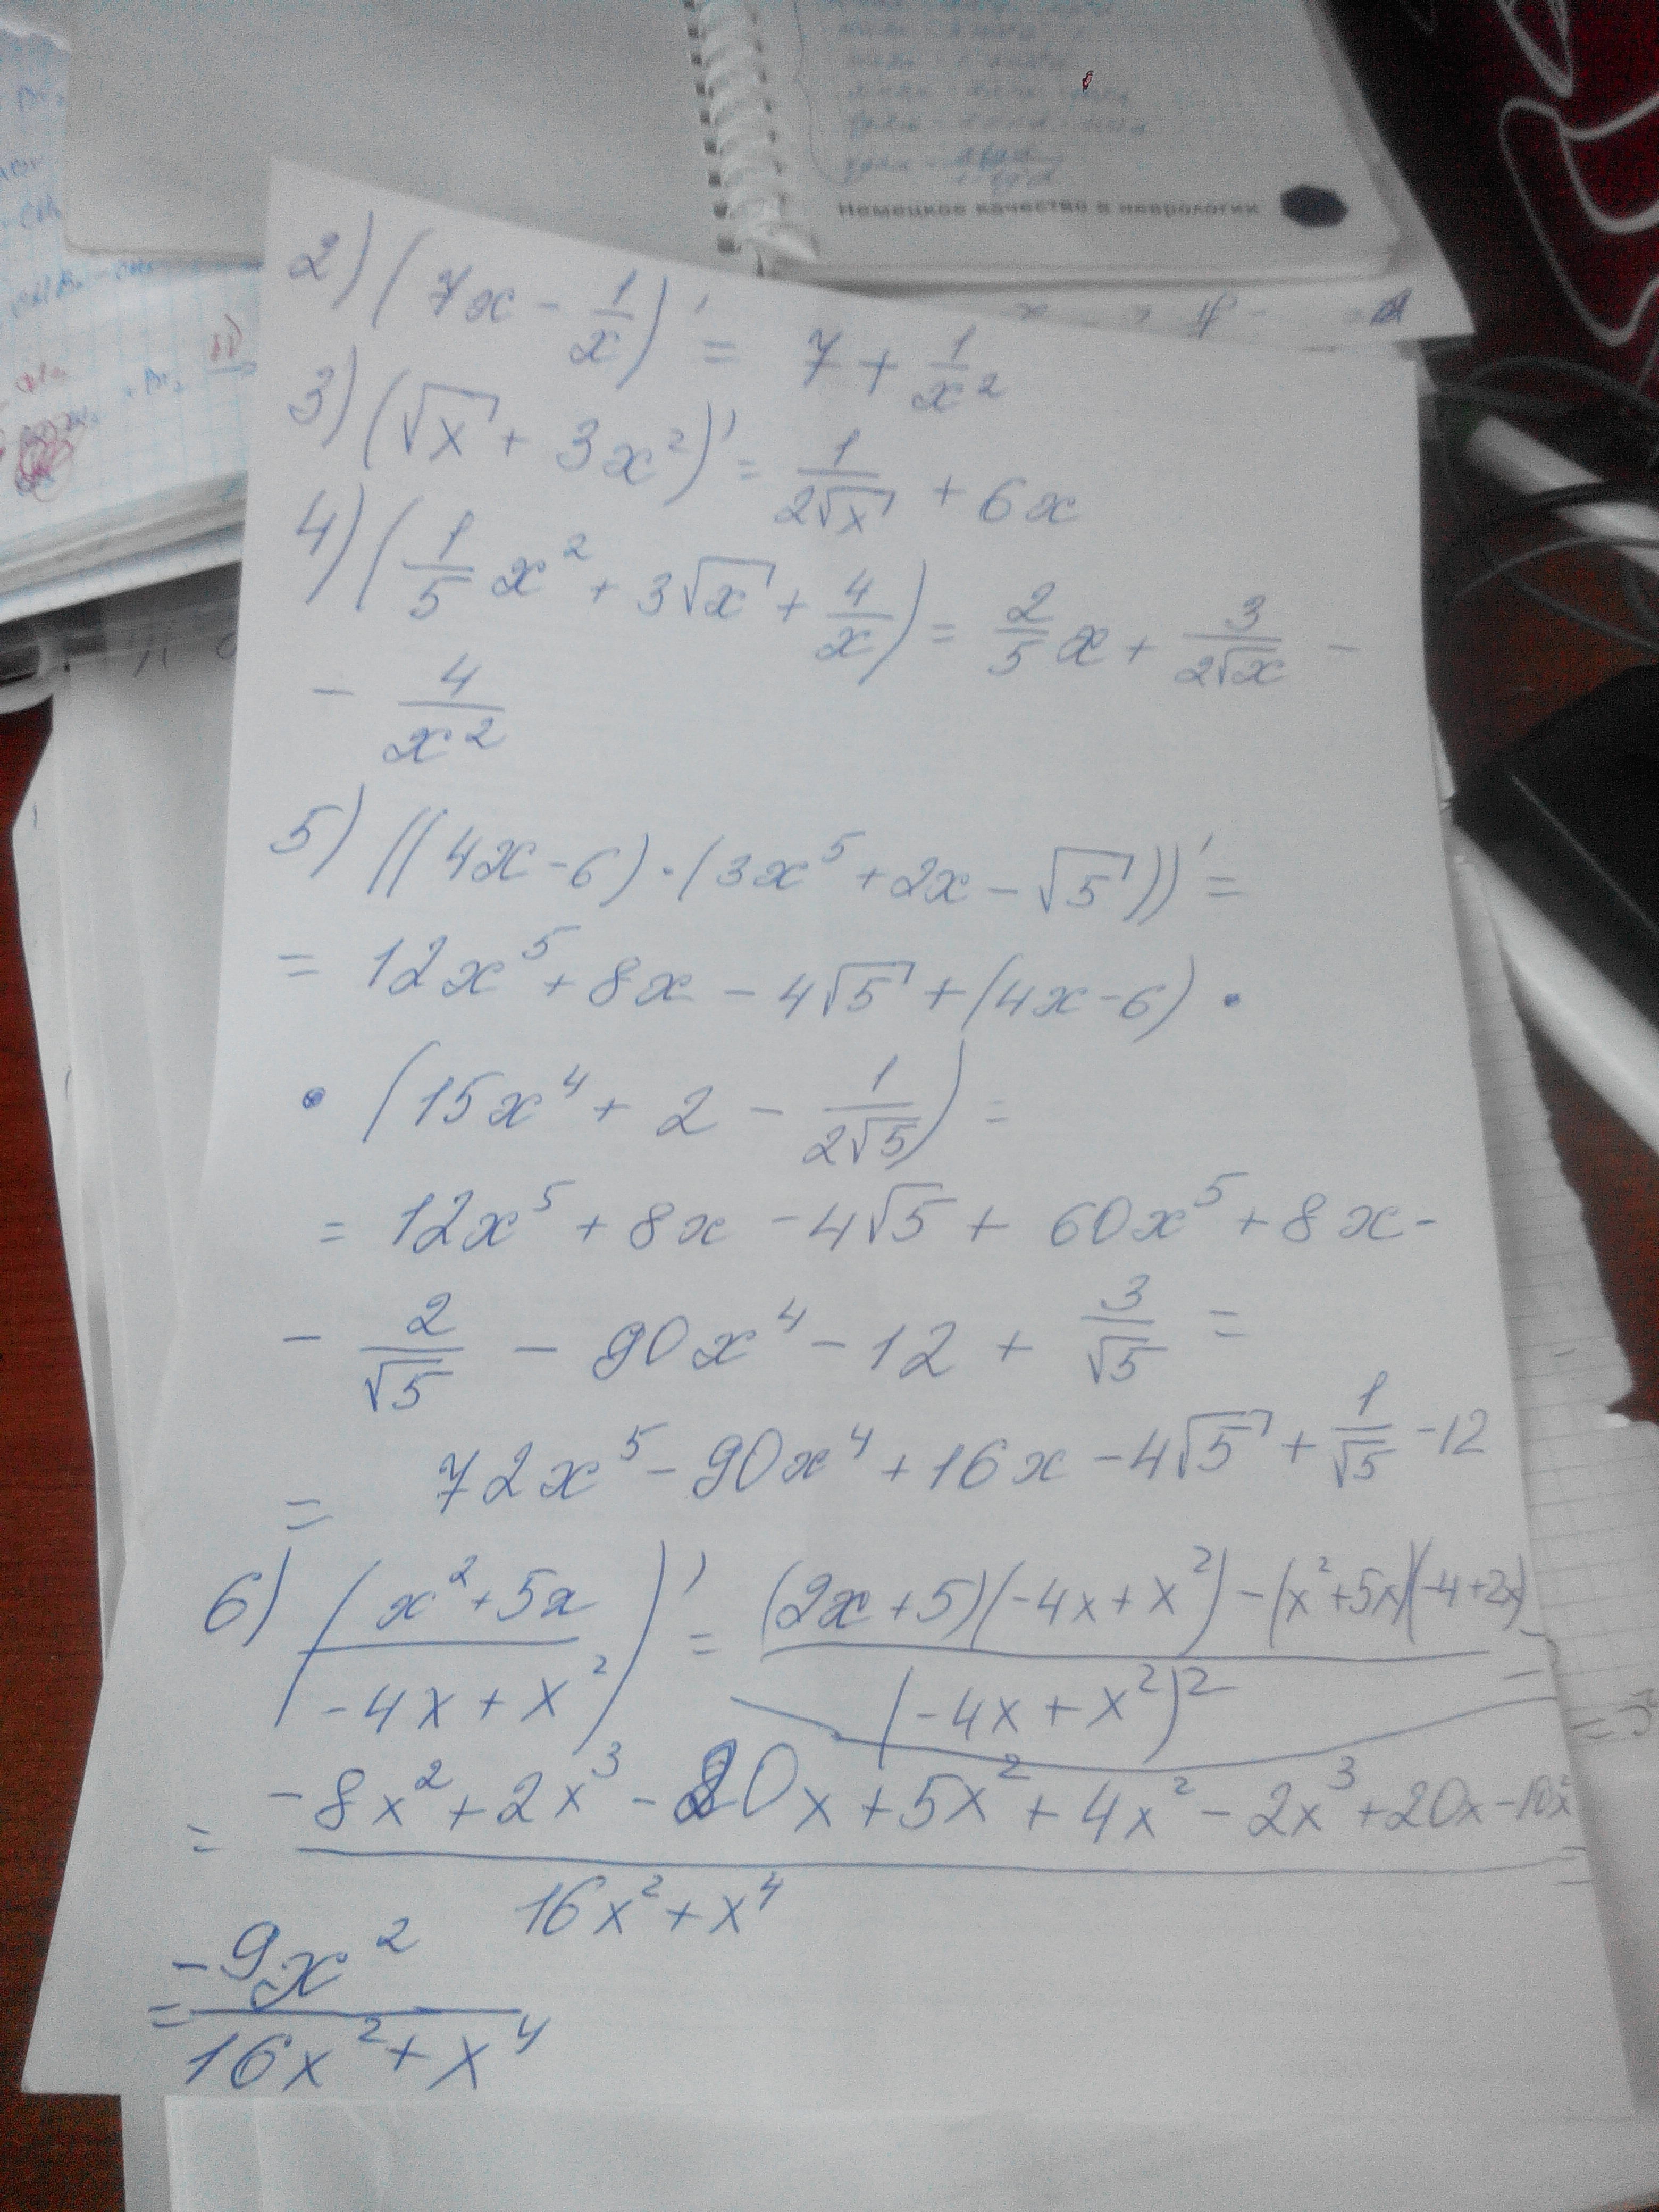 Немецкое качество в неврологии
2) (7x - 1/x)' = 7 + 1/x²
3) (√x + 3x²)' = 1/(2√x) + 6x
4) (1/5 x² + 3√x + 4/x) = 2/5 x + 3/(2√x) -
- 4/x²
5) ((4x-6)·(3x⁵+2x-√5))' =
= 12x⁵ + 8x - 4√5 + (4x-6) ·
· (15x⁴ + 2 - 1/(2√5)) =
= 12x⁵ + 8x - 4√5 + 60x⁵ + 8x -
- 2/√5 - 90x⁴ - 12 + 3/√5 =
= 72x⁵ - 90x⁴ + 16x - 4√5 + 1/√5 - 12
6) ((x²+5x)/(-4x+x²))' = ((2x+5)(-4x+x²)-(x²+5x)(-4+2x))/(-4x+x²)² =
= (-8x²+2x³-20x+5x²+4x²-2x³+20x-10x²)/(16x²+x⁴) =
= -9x²/(16x²+x⁴)